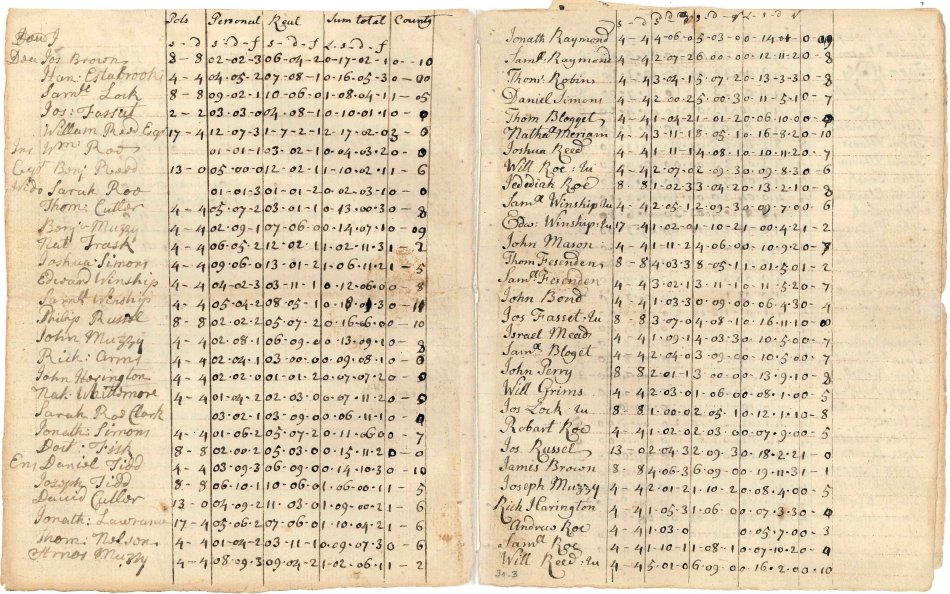 Pols Personal Real Sum total County
s - d s - d - f s - d - f L - s - d - f
Dea Jos Brown 8 - 8 02-02-3 06-04-2 0-17-02-1 0-10
Han: Estabrooks 4-4 04-05-2 07-08-1 0-16-05-3
Samll Lock 8-8 09-02-1 10-06-0 1-08-04-1 1-05
Jos: Fassit 2-2 03-03-0 04-08-1 0-10-01-1
William Reed Esqr 17-4 12-07-3 1-7-2-1 2-17-02-0
Wm Roe 01-01-1 03-02-1 0-04-03-2
Benj Reed 13-0 05-00-0 12-02-1 1-10-02-1 1-6
Wido Sarah Roe 01-01-3 01-01-2 0-02-03-1
Thom: Cutler 4-4 05-07-2 03-01-1 0-13-00-3 0-8
Benj: Muzzy 4-4 02-09-1 07-06-0 0-14-07-1 0-09
Nat Trask 4-4 06-05-2 12-02-1 1-02-11-3 1-2
Joshua Simons 4-4 09-06-0 13-01-2 1-06-11-2 1-5
Edward Winship 4-4 04-02-3 03-11-1 0-12-06-0 0-8
Samll Winship 4-4 05-04-2 08-05-1
Philip Russel 8-8 02-02-2 05-07-2 0-16-06-0 0-10
John Muzzy 4-4 02-08-1 06-09-0 0-13-09-1 0-8
Rich: Arms 4-4 02-04-1 03-00-0 0-09-08-1
John Harington 4-4 02-02-0 01-01-2 0-07-07-2
Nat: Whittmore 4-4 01-04-2 02-03-0 0-07-11-2
Sarah Roe Clock 03-02-1 03-09-0 0-06-11-1
Jonath: Simons 4-4 01-06-2 05-07-2 0-11-06-0 0-7
Doct: Fisk 8-8 02-00-2 05-03-0 0-15-11-2
Ens Daniel Tidd 4-4 03-09-3 06-09-0 0-14-10-3 0-10
Joseph Tidd 8-8 06-10-1 10-06-0 1-06-00-1 1-5
David Cutler 13-0 04-09-2 11-03-0 1-09-00-2 1-6
Jonath: Lawrance 17-4 05-06-2 07-06-0 1-10-04-2 1-6
Thom: Nelson 4-4 01-04-2 03-11-1 0-09-07-3 0-6
Amos Muzzy 4-4 08-09-3 09-04-2 1-02-06-1 1-2
Jonath Raymond 4-4 4-06-0 5-03-0 0-14-01
Samll Raymond 4-4 2-07-2 6-00-0 0-12-11-2 0-8
Thom: Robins 4-4 3-04-1 5-07-2 0-13-3-3 0-8
Daniel Simons 4-4 2-00-2 5-00-3 0-11-5-1 0-7
Thom Blogget 4-4 1-04-2 1-01-2 0-06-10-0
Natha Meriam 4-4 3-11-1 8-05-1 0-16-8-2 0-10
Joshua Reed 4-4 1-11-1 4-08-1 0-10-11-2 0-7
Will Roe: Ju 4-4 2-07-0 2-09-3 0-09-8-3 0-6
Jedediah Roe 8-8 1-02-3 3-04-2 0-13-2-1 0-8
Samll Winship: Ju 4-4 2-05-1 2-09-3 0-09-7-0 0-6
Edw: Winship: Ju 17-4 1-02-0 1-10-2 1-00-4-2 1-2
John Mason 4-4 1-11-2 4-06-0 0-10-9-2 0-8
Thom Fesenden 8-8 4-03-3 8-05-1 1-01-5-0 1-2
Samll Fesenden 4-4 3-02-1 3-11-1 0-11-5-2 0-7
John Bond 4-4 1-03-3 0-09-0 0-06-4-3 0-4
Jos Fasset: Ju 8-8 3-07-0 4-08-1 0-16-11-1
Israel Mead 4-4 1-09-1 4-03-3 0-10-5-0 0-7
Samll Bloget 4-4 2-04-0 3-09-0 0-10-5-0 0-7
John Perry 8-8 2-01-1 3-00-0 0-13-9-1 0-8
Will Grims 4-4 2-03-0 1-06-0 0-08-1-0 0-5
Jos Lock: Ju 8-8 1-00-0 2-05-1 0-12-1-1 0-8
Robart Roe 4-4 1-02-0 2-03-0 0-07-9-0 0-5
Jos Russel 13-0 2-04-3 2-09-3 0-18-2-2 1-0
James Brown 8-8 4-06-3 6-09-0 0-19-11-3 1-1
Joseph Muzzy 4-4 2-01-2 1-10-2 0-08-4-0 0-5
Rich Harington 4-4 1-05-3 1-06-0 0-07-3-3 0-4
Andrus Roe 4-4 1-03-0 0-05-7-0 0-3
Samll Roe 4-4 1-10-1 1-08-1 0-07-10-2
Will Reed: Ju 4-4 5-01-0 6-09-0 0-16-2-0 0-10
30.3